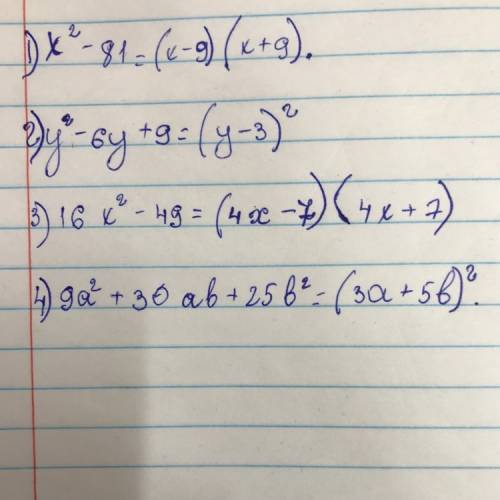 1) x² - 81 = (x-9)(x+9).
2) y² - 6y + 9 = (y-3)²
3) 16x² - 49 = (4x-7)(4x+7)
4) 9a² + 30ab + 25b² = (3a+5b)².